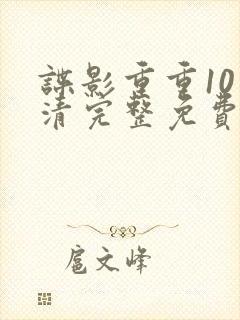 諜影重重10
清完整免費
扈文峰